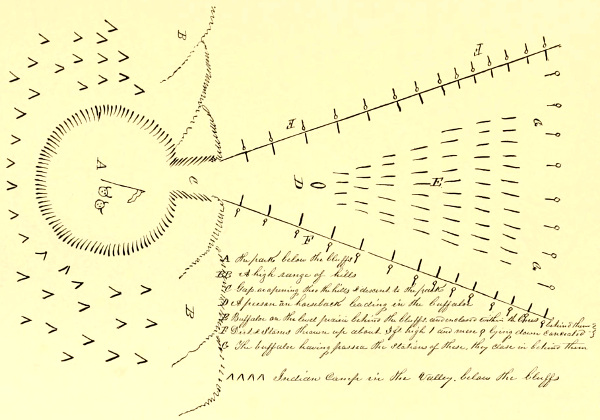 B
F
F
G
A
C
D
E
F
G
B
A The park below the bluffs
BB A high range of hills
C Gap or opening thro the hills & descent to the park
D A person on horseback leading in the buffaloe
E Buffaloe on the level prairie behind the bluffs, and enclosed within the lines
F Dirt & stones thrown up about 2 ft high & men lying down concealed behind them
G The buffaloe having passed the stations of these, they close in behind them
ΛΛΛΛ Indian Camp in the Valley, below the bluffs